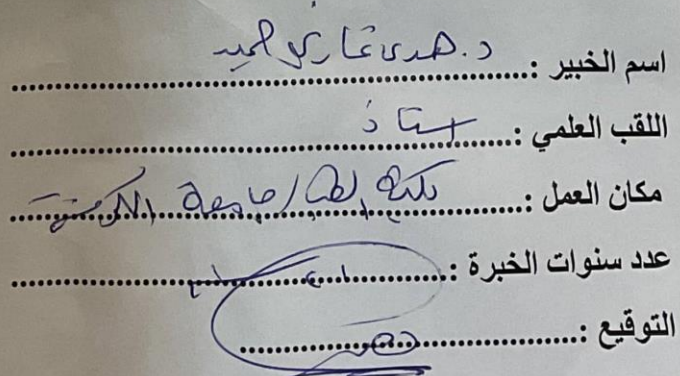 اسم الخبير : د. هدى غازي حميد
اللقب العلمي : استاذ
مكان العمل : كلية الطب / جامعة الكوفة
عدد سنوات الخبرة :
التوقيع :